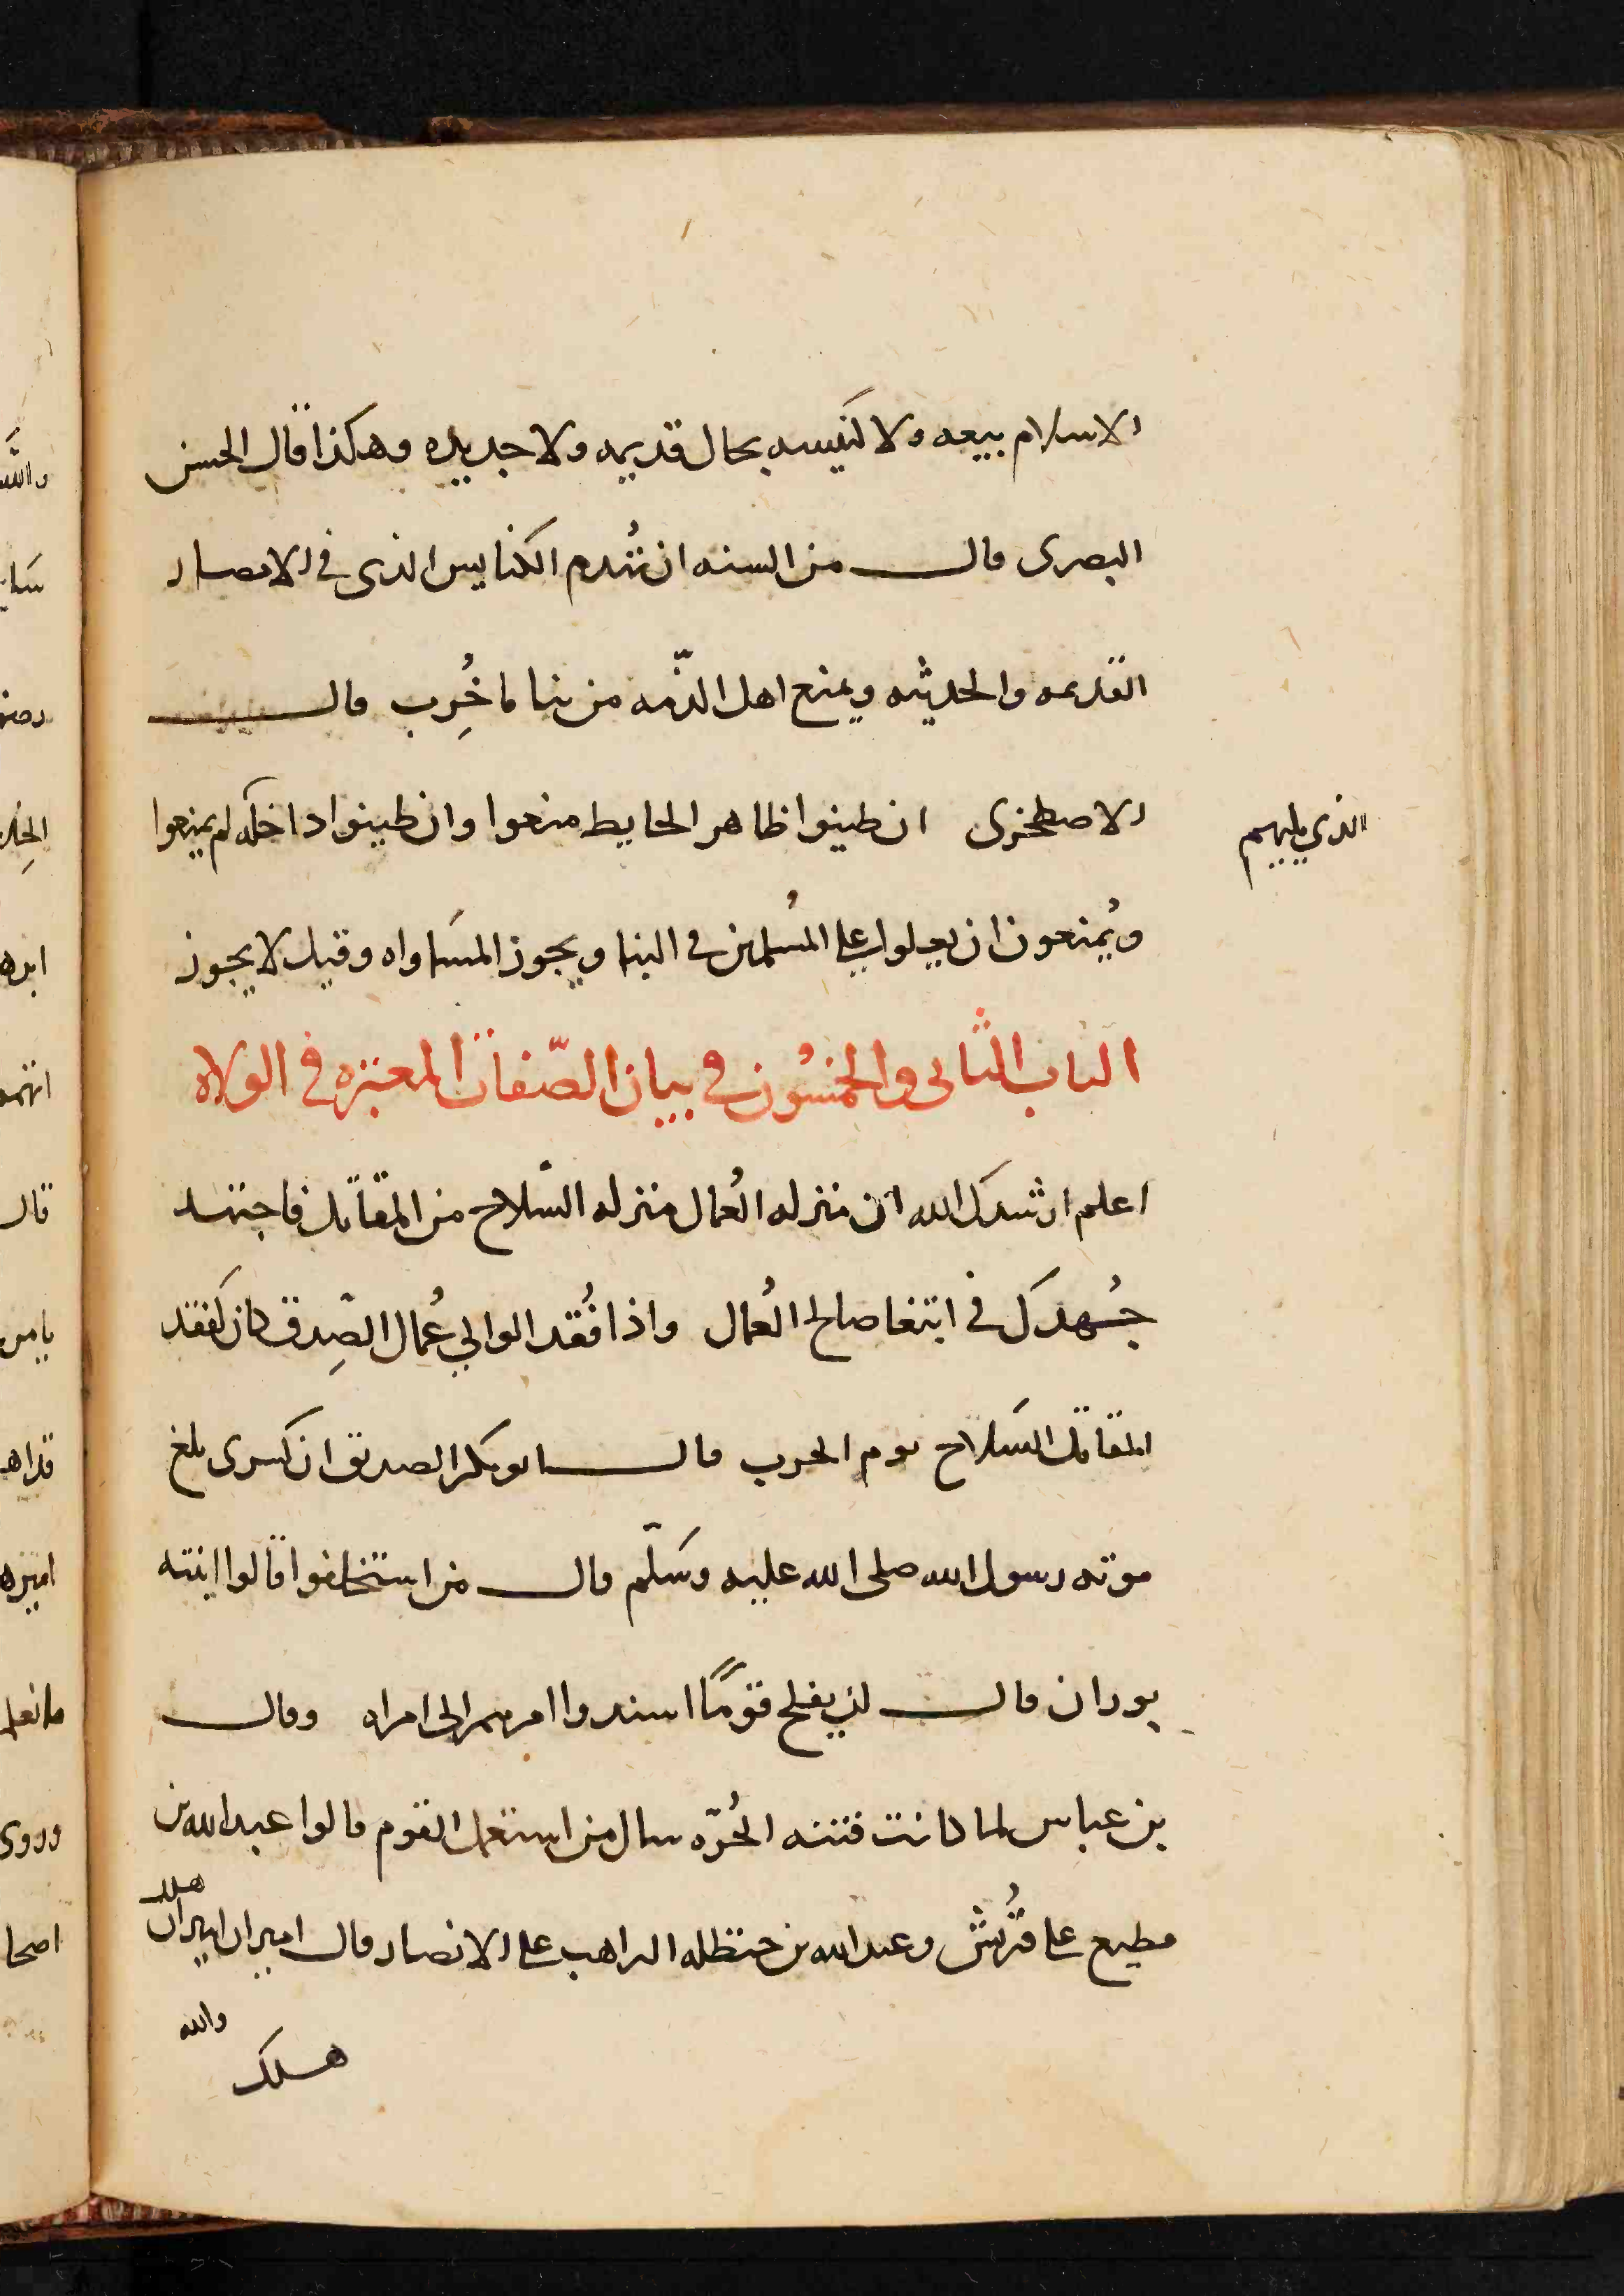 الاسلام بيعه ولا كنيسه بحال قديمه ولا جديده وهكذا قال الحسن
البصرى قال من السنه ان تُهدم الكنايس الذى فى الامصار
القديمه والحديثه ويمنع اهل الذّمه من بنا ما خُرِب قال
الاصطخرى ان طينوا ظاهر الحايط منعوا وان طينوا داخله لم يمنعوا
الذي يليهم
ويُمنعون ان يعلوا على المُسلمين فى البنا ويجوز المساواه وقيل لا يجوز
الباب الثانى والخمسُون فى بيان الصّفات المعتبره فى الولاه
اعلم ارشدك الله ان منزله العُمال منزله السّلاح من المقاتل فاجتهد
جُهدك فى ابتغا صالح العُمال واذا فُقد الوالي عُمال الصِّدق كان كفقد
المقاتل السلاح يوم الحرب قال ابو بكر الصديق ان كسرى بلغ
موته رسول الله صلى الله عليه وسلّم قال من استخلفوا قالوا ابنته
بوران قال لن يفلح قومًا اسندوا امرهم الى امراه وقال
بن عباس لما كانت فتنه الحُرّه سال من استعمل القوم قالوا عبد الله بن
مطيع على قُريش وعبد الله بن حنظله الراهب على الانصار قال اميران اميران هلك
والله
هلك